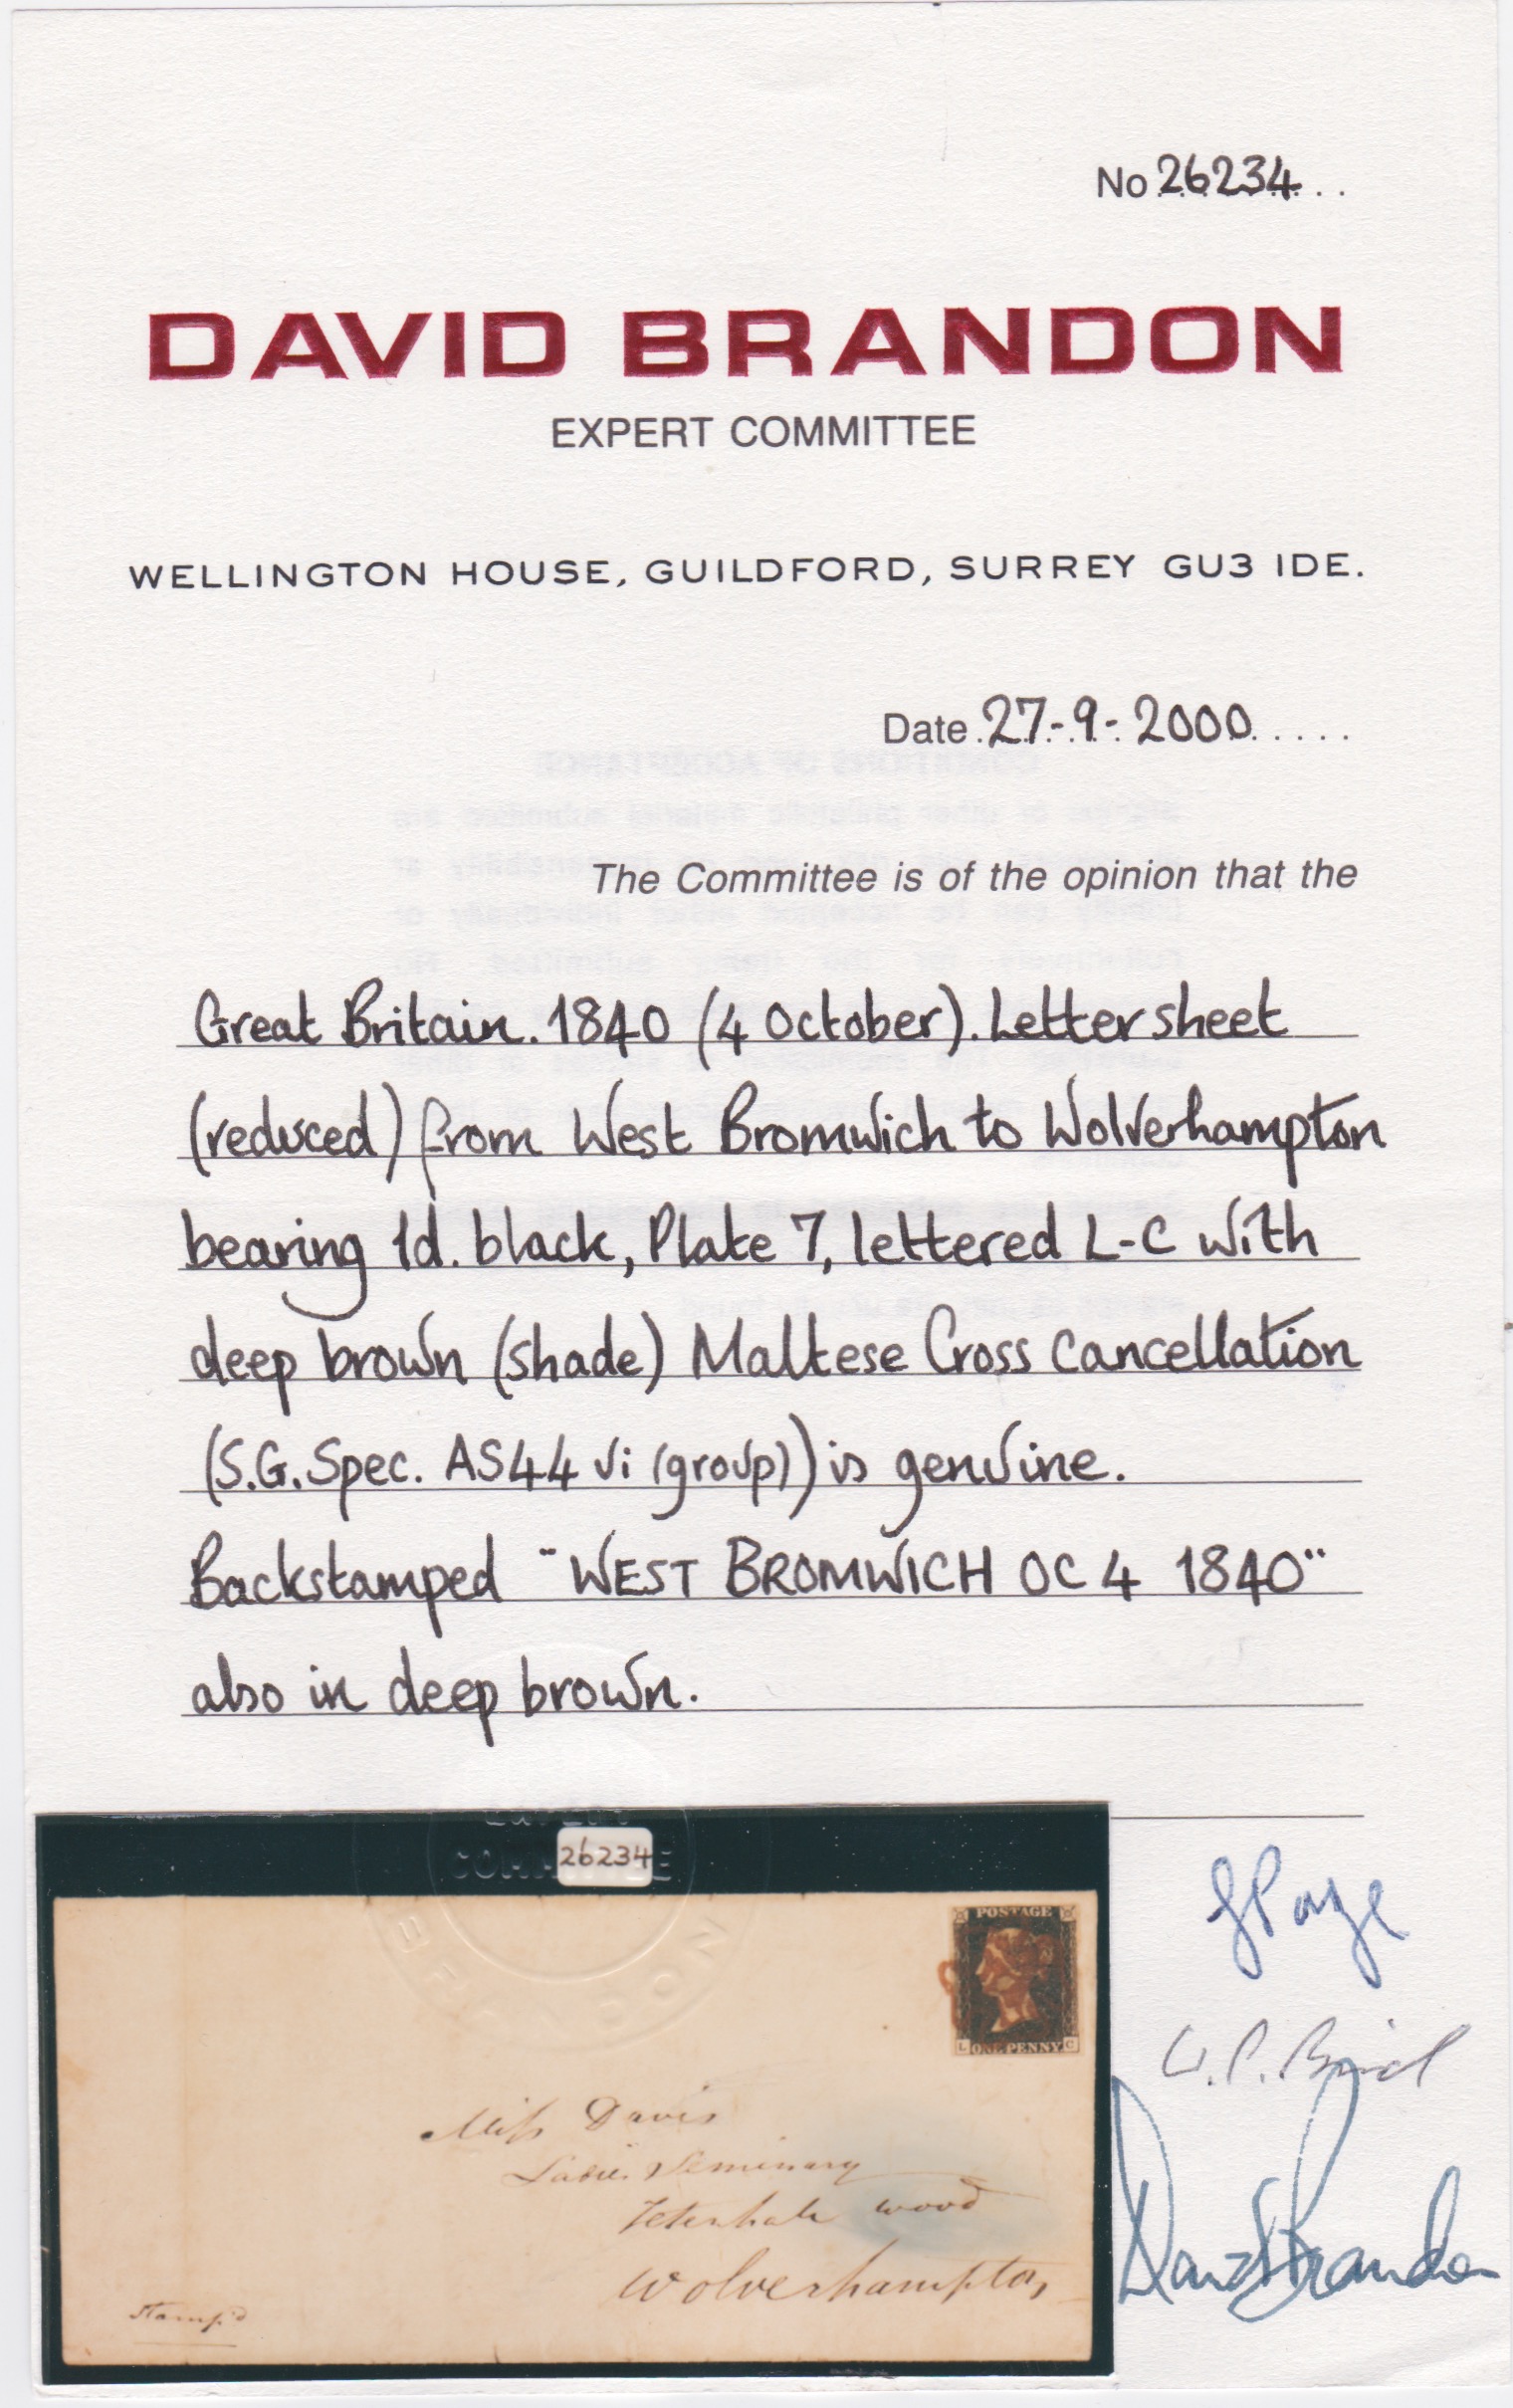 No 26234
DAVID BRANDON
EXPERT COMMITTEE
WELLINGTON HOUSE, GUILDFORD, SURREY GU3 IDE.
Date 27-9-2000
The Committee is of the opinion that the
Great Britain. 1840 (4 October). Letter sheet
(reduced) from West Bromwich to Wolverhampton
bearing 1d. black, Plate 7, lettered L-C with
deep brown (shade) Maltese Cross cancellation
(S.G. Spec. AS44 vi (group)) is genuine.
Backstamped "WEST BROMWICH OC 4 1840"
also in deep brown.
EXPERT
COMMITTEE
26234
BRANDON
POSTAGE
L ONE PENNY C
Miss Davis
Ladies Seminary
wood
Wolverhampton
Stamp'd
David Brandon